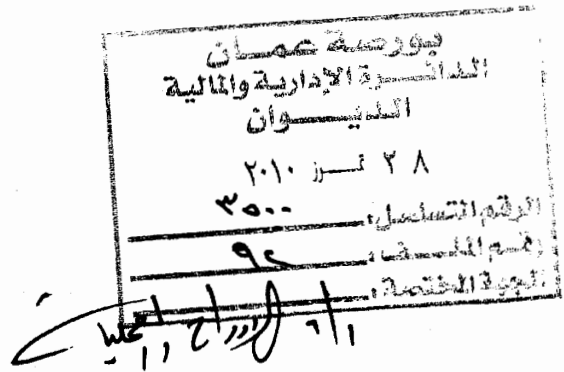 بورصة عمان
الدائرة الإدارية والمالية
الديوان
٢٨ تموز ٢٠١٠
الرقم المتسلسل: ٣٥٠٠
رقم الملف:
الجهة المختصة:
الإدراج